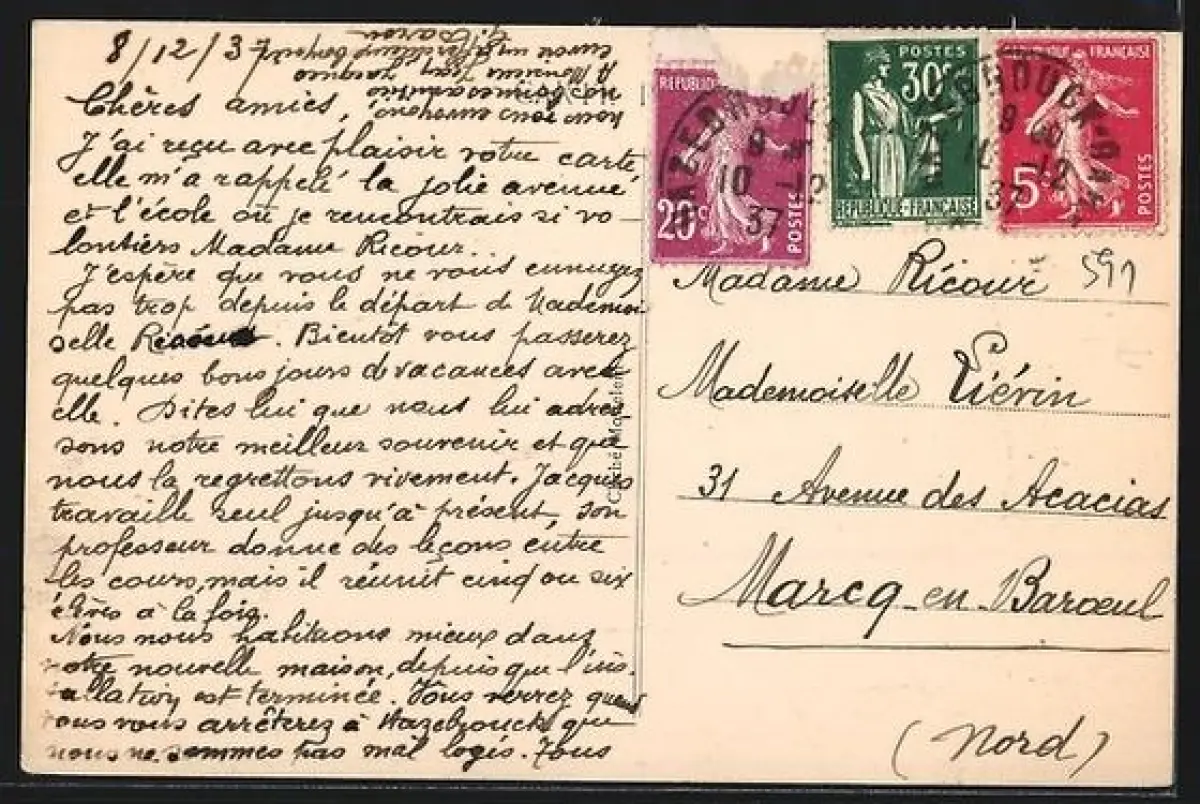 8/12/37
Chères amies,
J'ai reçu avec plaisir votre carte,
elle m'a rappelé la jolie avenue
et l'école où je rencontrais si vo-
lontiers Madame Ricour..
J'espère que vous ne vous ennuyez
pas trop depuis le départ de Mademoi-
selle. Bientôt vous passerez
quelques bons jours de vacances avec
elle. Dites lui que nous lui adres-
sons notre meilleur souvenir et que
nous la regrettons vivement. Jacques
travaille seul jusqu'à présent, son
professeur donne des leçons entre
les cours, mais il réunit cinq ou six
élèves à la fois.
Nous nous habituons mieux dans
notre nouvelle maison, depuis que l'ins-
tallation est terminée. Vous verrez quand
vous vous arrêterez à Hazebrouck que
nous ne sommes pas mal logés. Tous
nous vous envoyons,
nos bonnes amitiés
RÉPUBLIQUE
20c
POSTES
POSTES
30c
RÉPUBLIQUE-FRANÇAISE
RÉPUBLIQUE FRANÇAISE
5c
POSTES
HAZEBROUCK
9
10 -12
37
HAZEBROUCK-GARE
10 -12
37
Madame Ricour
591
Mademoiselle Liévin
31 Avenue des Acacias
Marcq-en-Barœul
(Nord)